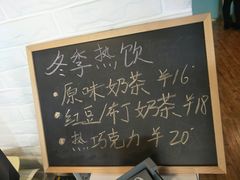 冬季热饮
·原味奶茶 ¥16
·红豆/布丁奶茶 ¥18
·热巧克力 ¥20